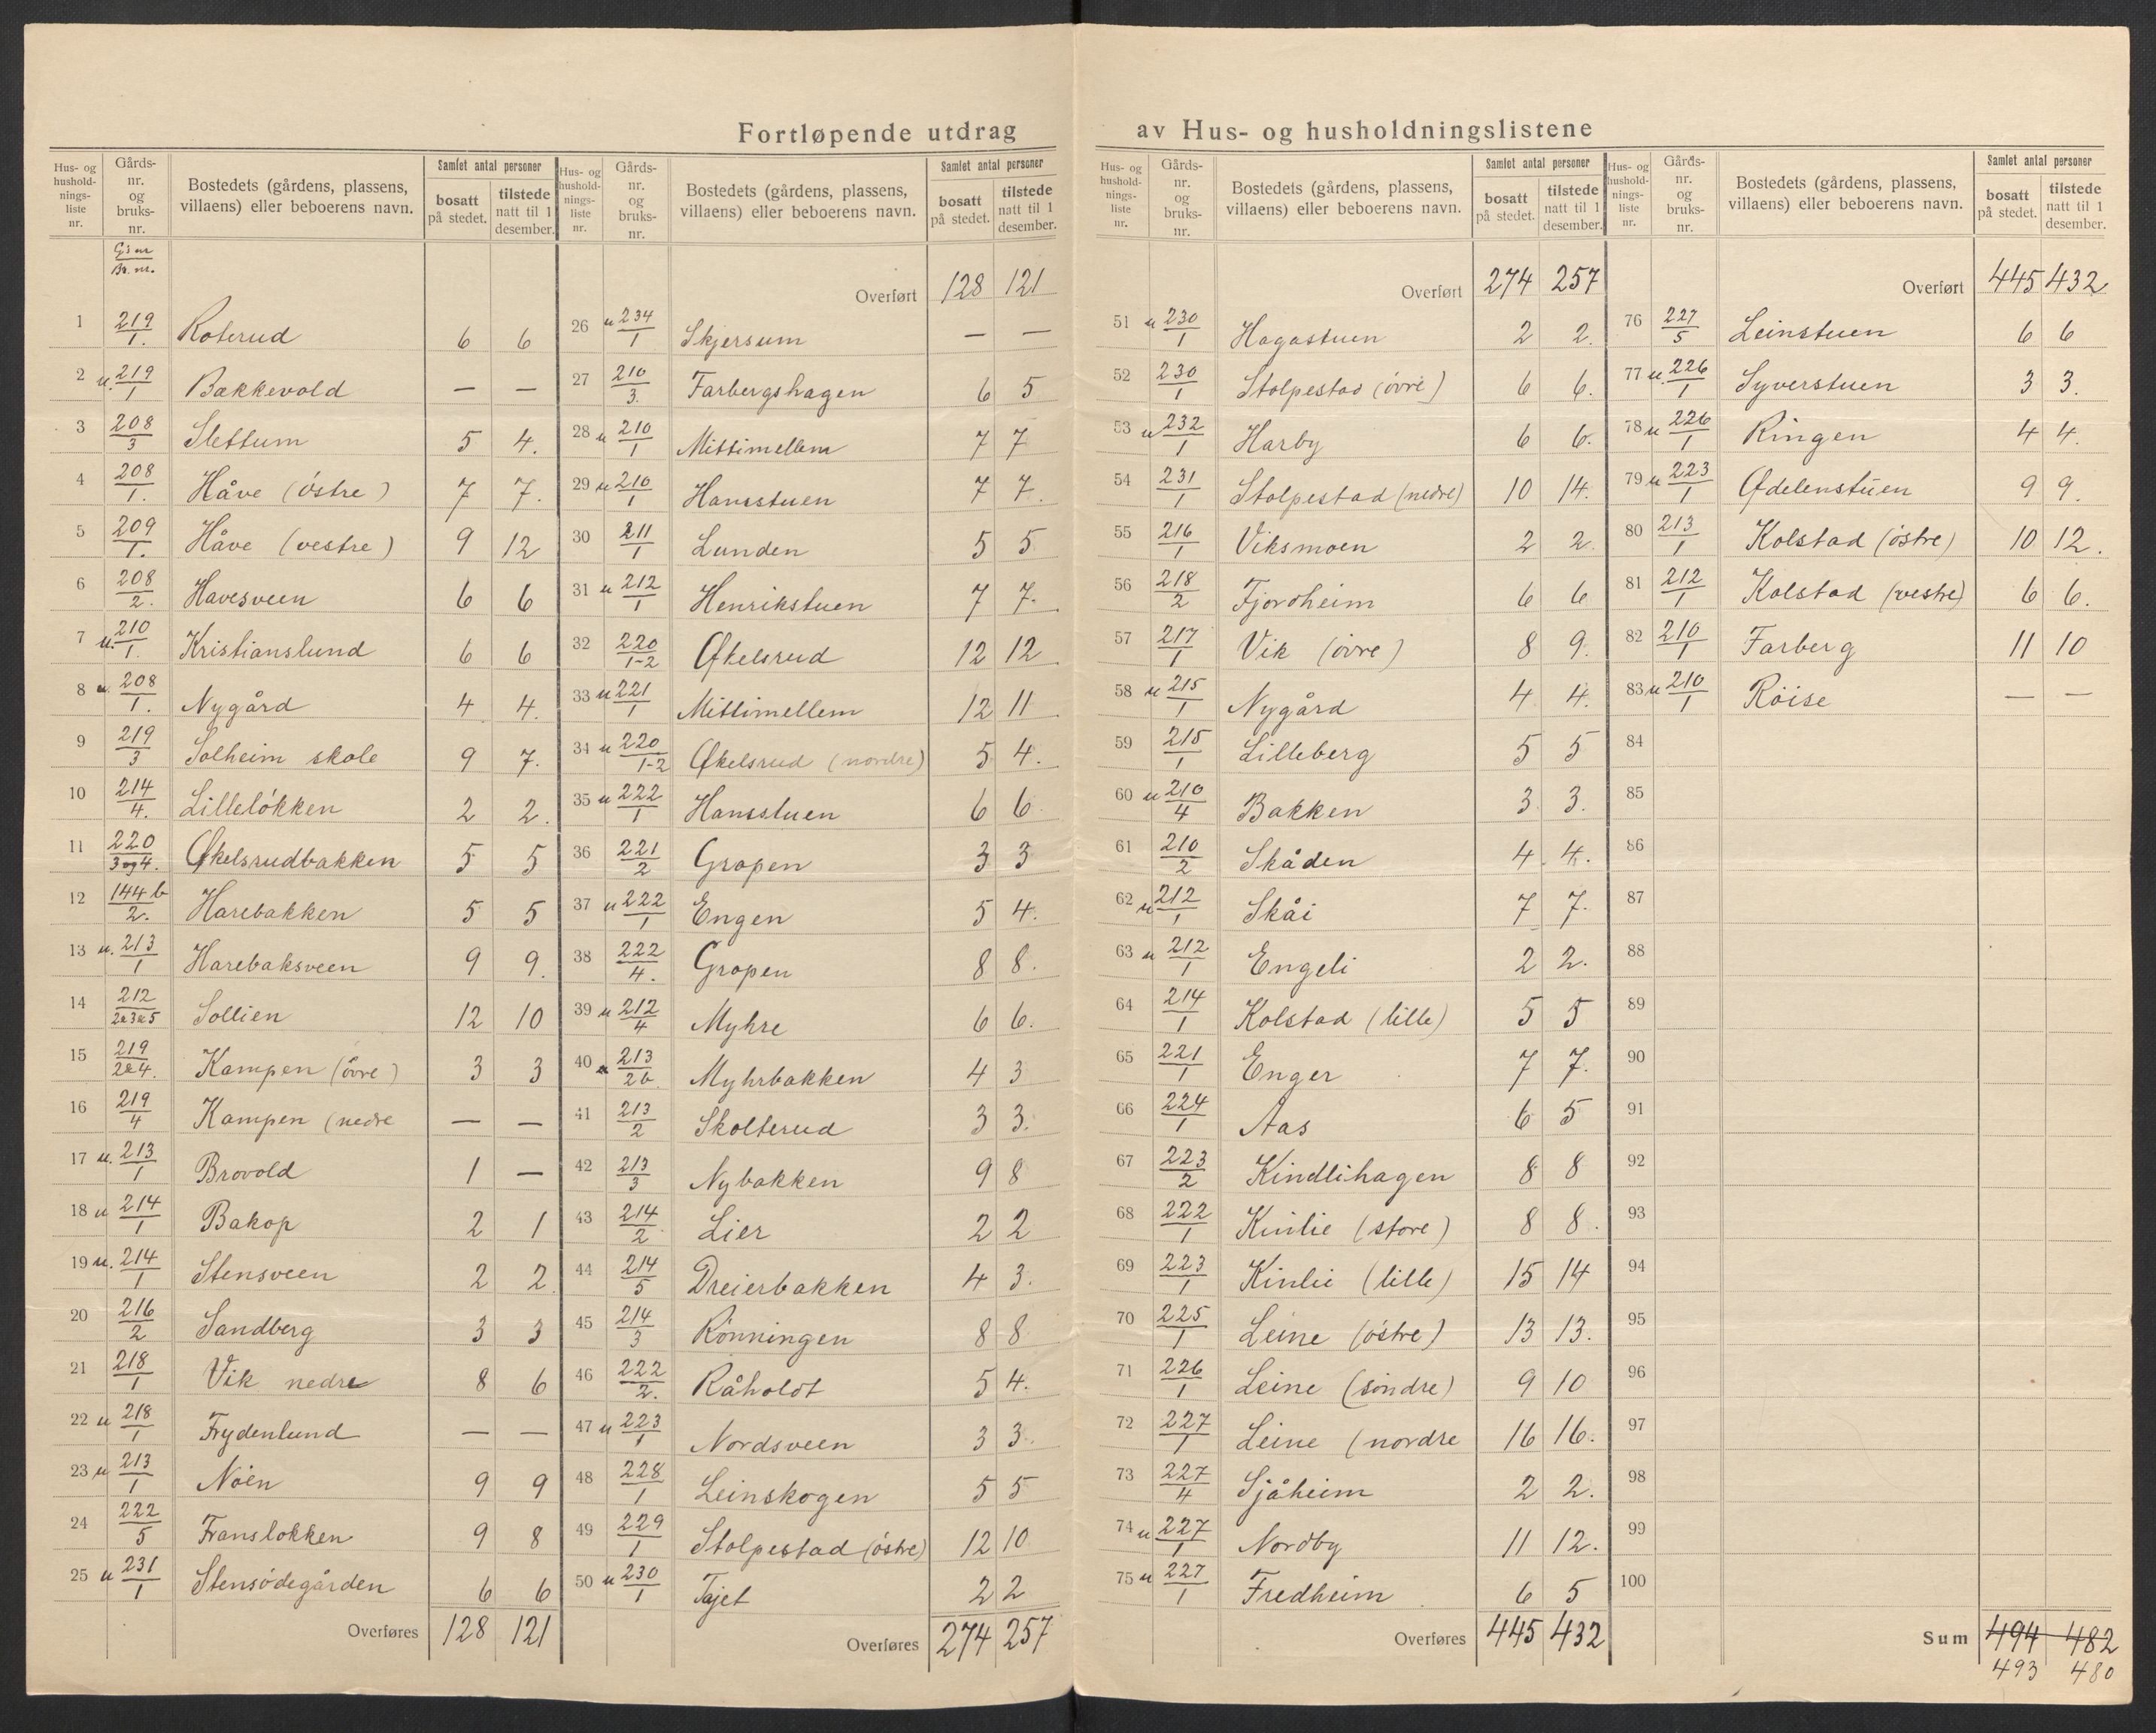 Fortløpende utdrag av Hus- og husholdningslistene
Hus- og husholdnings-liste nr. | Gårds-nr. og bruks-nr. | Bostedets (gårdens, plassens, villaens) eller beboerens navn. | Samlet antal personer: bosatt på stedet. | tilstede natt til 1 desember.
G.s nr / Br. nr.
1 219/1. Roterud 6 6
2 u. 219/1 Bakkevold — —
3 208/3 Slettum 5 4.
4 208/1. Håve (östre) 7 7.
5 209/1. Håve (vestre) 9 12
6 208/2. Havesveen 6 6
7 u. 210/1. Kristianslund 6 6
8 u. 208/1. Nygård 4 4.
9 219/3 Solheim skole 9 7.
10 214/4. Lillelökken 2 2.
11 220/3 og 4. Økelsrudbakken 5 5
12 144 b/2. Harebakken 5 5
13 u. 213/1 Harebaksveen 9 9.
14 212/2&3&5 Sollien 12 10
15 219/2&4. Kampen (övre) 3 3
16 219/4 Kampen (nedre — —
17 u. 213/1 Brovold 1 —
18 u 214/1 Bakop 2 1
19 u. 214/1 Stensveen 2 2
20 216/2 Sandberg 3 3
21 218/1 Vik nedre 8 6
22 u 218/1 Frydenlund — —
23 u 213/1 Nöen 9 9
24 222/5 Franslokken 9 8
25 u 231/1 Stensödegården 6 6
Overføres 128 121
Hus- og husholdnings-liste nr. | Gårds-nr. og bruks-nr. | Bostedets (gårdens, plassens, villaens) eller beboerens navn. | Samlet antal personer: bosatt på stedet. | tilstede natt til 1 desember.
Overført 128 121
26 u 234/1 Skjersum — —
27 210/3. Farbergshagen 6 5
28 u 210/1 Mittimellem 7 7
29 u 210/1 Hansstuen 7 7.
30 211/1 Lunden 5 5
31 u 212/1 Henrikstuen 7 7.
32 220/1-2 Økelsrud 12 12
33 u 221/1 Mittimellem 12 11
34 u 220/1-2 Økelsrud (nordre) 5 4.
35 u 222/1 Hansstuen 6 6
36 221/2 Gropen 3 3
37 u 222/1 Engen 5 4.
38 222/4. Gropen 8 8.
39 u 212/4 Myhre 6 6.
40 u 213/2b. Myhrbakken 4 3
41 213/2 Skolterud 3 3.
42 213/3 Nybakken 9 8
43 214/2 Lier 2 2
44 214/5 Dreierbakken 4 3.
45 214/3 Rönningen 8 8
46 222/2. Råholdt 5 4.
47 u 223/1 Nordsveen 3 3.
48 228/1 Leinskogen 5 5
49 229/1 Stolpestad (östre) 12 10
50 u 230/1 Tajet 2 2
Overføres 274 257
Hus- og husholdnings-liste nr. | Gårds-nr. og bruks-nr. | Bostedets (gårdens, plassens, villaens) eller beboerens navn. | Samlet antal personer: bosatt på stedet. | tilstede natt til 1 desember.
Overført 274 257
51 u 230/1 Hagastuen 2 2.
52 230/1 Stolpestad (övre) 6 6.
53 u 232/1 Harby 6 6.
54 231/1 Stolpestad (nedre) 10 14.
55 216/1 Viksmoen 2 2.
56 218/2 Fjordheim 6 6
57 217/1 Vik (övre) 8 9.
58 u 215/1 Nygård 4 4.
59 215/1 Lilleberg 5 5
60 u 210/4 Bakken 3 3.
61 210/2 Skåden 4 4.
62 u 212/1 Skåi 7 7.
63 u 212/1 Engeli 2 2.
64 214/1 Kolstad (lille) 5 5
65 221/1 Enger 7 7.
66 224/1 Aas 6 5
67 223/2 Kindlihagen 8 8
68 222/1 Kinlie (store) 8 8.
69 223/1 Kinlie (lille) 15 14
70 225/1 Leine (östre) 13 13.
71 226/1 Leine (söndre) 9 10
72 227/1 Leine (nordre 16 16.
73 227/4 Sjåheim 2 2.
74 u 227/1 Nordby 11 12.
75 u 227/1 Fredheim 6 5
Overføres 445 432
Hus- og husholdnings-liste nr. | Gårds-nr. og bruks-nr. | Bostedets (gårdens, plassens, villaens) eller beboerens navn. | Samlet antal personer: bosatt på stedet. | tilstede natt til 1 desember.
Overført 445 432
76 227/5 Leinstuen 6 6
77 u. 226/1 Syverstuen 3 3.
78 u 226/1 Ringen 4 4.
79 u 223/1 Ødelenstuen 9 9.
80 213/1 Kolstad (östre) 10 12.
81 212/1 Kolstad (vestre) 6 6.
82 210/1 Farberg 11 10
83 u 210/1 Röise — —
84
85
86
87
88
89
90
91
92
93
94
95
96
97
98
99
100
Sum 494 482
493 480